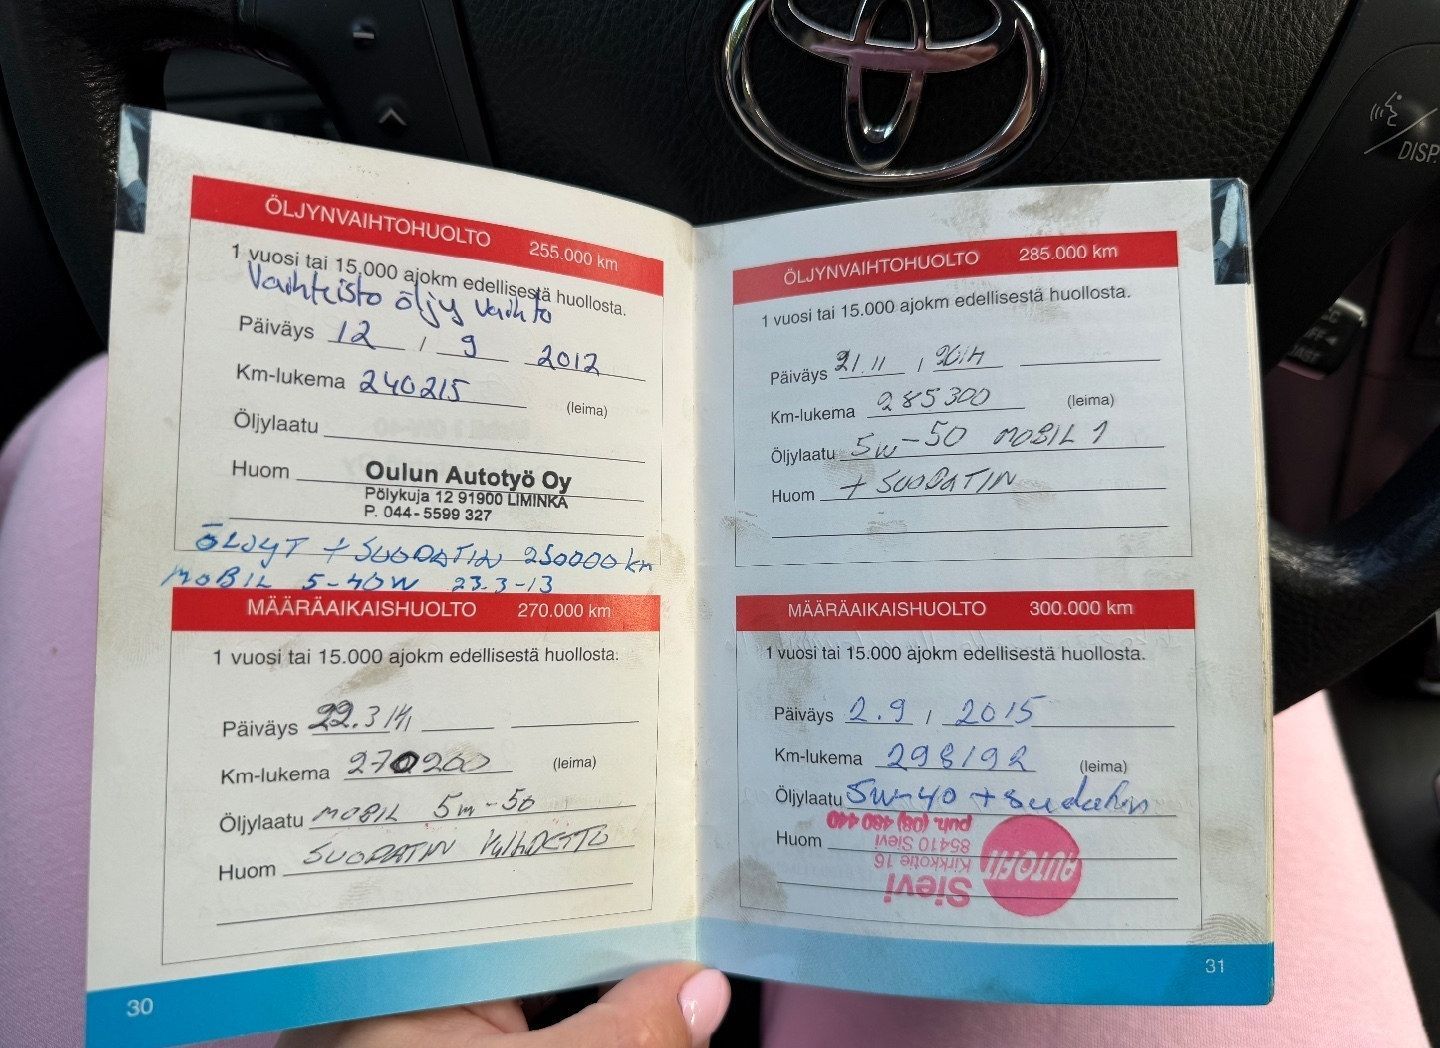 DISP
ÖLJYNVAIHTOHUOLTO 255.000 km
1 vuosi tai 15.000 ajokm edellisestä huollosta.
Vaihteisto öljy vaihto
Päiväys 12 / 9 2012
Km-lukema 240215
(leima)
Öljylaatu
Huom
Oulun Autotyö Oy
Pölykuja 12 91900 LIMINKA
P. 044-5599 327
ÖLJYT + SUODATIN 250000 km
MOBIL 5-40W 23.3-13
MÄÄRÄAIKAISHUOLTO 270.000 km
1 vuosi tai 15.000 ajokm edellisestä huollosta.
Päiväys 22.3 14
Km-lukema 270200 (leima)
Öljylaatu MOBIL 5w-50
Huom SUODATIN VAIHDETTU
30
ÖLJYNVAIHTOHUOLTO 285.000 km
1 vuosi tai 15.000 ajokm edellisestä huollosta.
Päiväys 21.11 / 2014
Km-lukema 285300 (leima)
Öljylaatu 5w-50 MOBIL 1
Huom + SUODATIN
MÄÄRÄAIKAISHUOLTO 300.000 km
1 vuosi tai 15.000 ajokm edellisestä huollosta.
Päiväys 2.9 / 2015
Km-lukema 298192 (leima)
Öljylaatu 5W-40 + suodatin
Huom
AUTOFIT
Sievi
Kirkkotie 16
85410 Sievi
puh. (08) 480 440
31